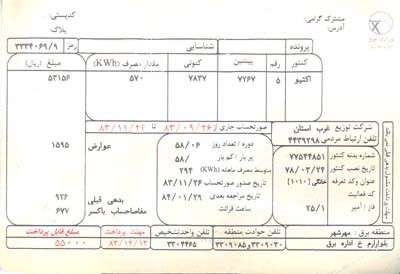 کدپستی:
پلاک
مشترک گرامی:
آدرس:
پرونده
شناسایی
رمز
۳۳۳۴۰۶۹/۹
کنتور
رقم
پیشین
کنونی
مقدار مصرف (KWh)
مبلغ (ریال)
اکتیو
۵
۷۲۶۷
۷۸۳۷
۵۷۰
۵۳۱۵۶
شرکت توزیع غرب استان
تلفن ارتباط مردمی ۴۴۳۹۲۹۸
صورتحساب جاری از ۸۳/۰۹/۲۶ تا ۸۳/۱۱/۲۴
شماره بدنه کنتور ۷۷۵۴۴۸۵۱
تاریخ نصب کنتور ۷۸/۰۳/۲۴
عنوان وکد تعرفه خانگی [۱۰۱۰]
کد فعالیت
فاز / آمپر ۲۵/۱
دوره / تعداد روز ۵۸/۰۶
پر بار / کم بار ۵۸/
متوسط مصرف ماهانه (KWh) ۲۹۴
تاریخ صدور صورتحساب ۸۳/۱۱/۲۶
تاریخ مراجعه بعدی ۸۴/۰۱/۲۹
ساعت قرائت
عوارض ۱۵۹۵
بدهی قبلی ۹۲۶
مفاصاحساب باکسر ۶۷۷
منطقه برق : مهرشهر
بلوارارم خ اداره برق
تلفن حوادث منطقه
۳۳۰۹۰۸۵و۳۳۰۹۰۳۰
تلفن واحدتشخیص
۳۳۰۴۴۶۵
مهلت پرداخت
۸۳/۱۲/۱۲
مبلغ قابل پرداخت
۵۵۰۰۰